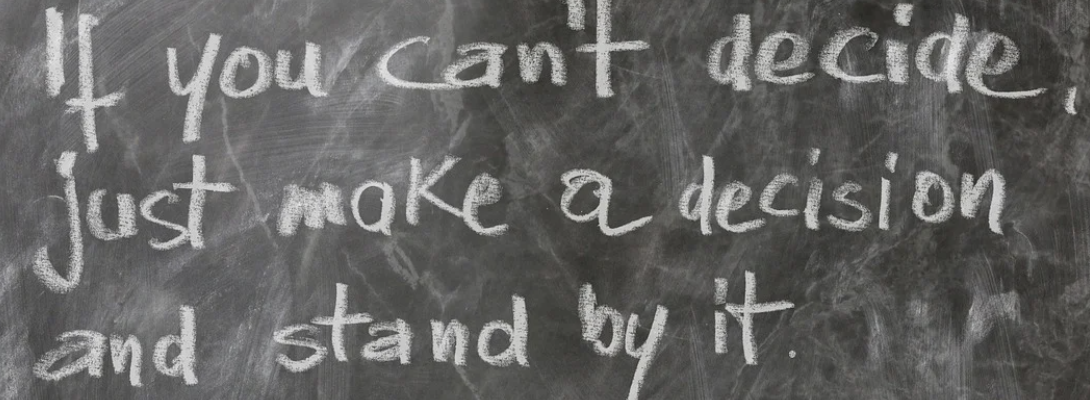 If you can't decide,
just make a decision
and stand by it.